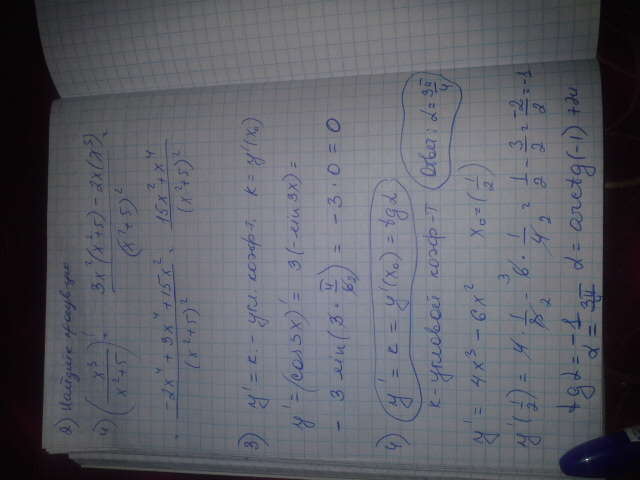 2) Найдите производную
4) (x³/(x²+5))' = (3x²(x²+5) - 2x(x³))/(x²+5)² =
= (-2x⁴ + 3x⁴ + 15x²)/(x²+5)² = (15x² + x⁴)/(x²+5)²
3) y' = к. - угл. коэф-т. к = y'(x₀)
y' = (cos3x)' = 3(-sin3x) =
- 3 sin(3 · π/6 2) = -3 · 0 = 0
4) y' = к = y'(x₀) = tgα
к-угловой коэф-т Ответ: α = 3π/4
y' = 4x³ - 6x² x₀ = (1/2)
y'(1/2) = 4 · 1/8 2 - 3 6 · 1/4 2 = 1/2 - 3/2 = -2/2 = -1
tgα = -1 α = arctg(-1) +
α = 3π/4